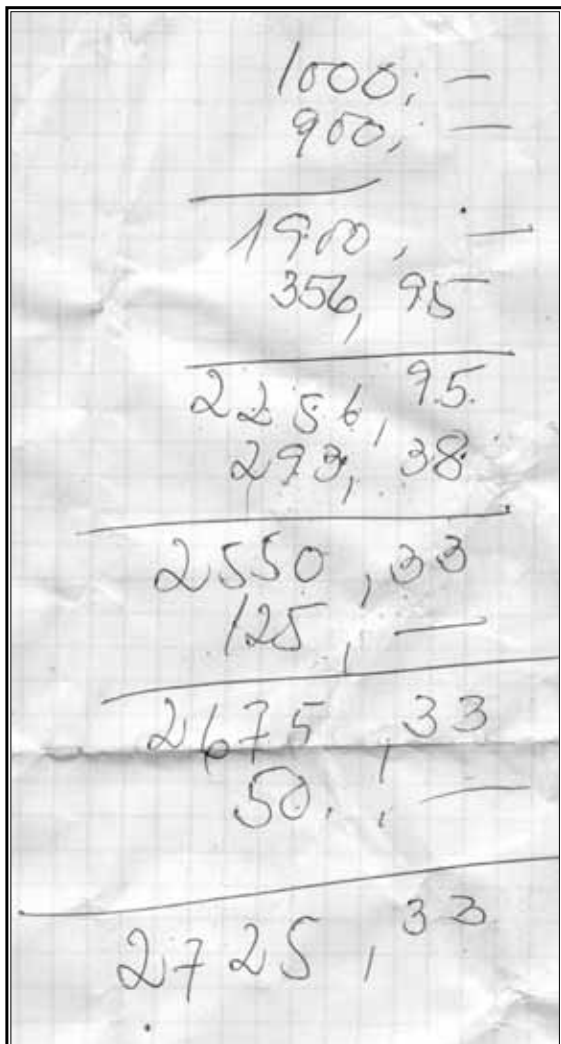 1000,—
900,—
1900,—
356,95
2256,95
293,38
2550,33
125,—
2675,33
50,—
2725,33